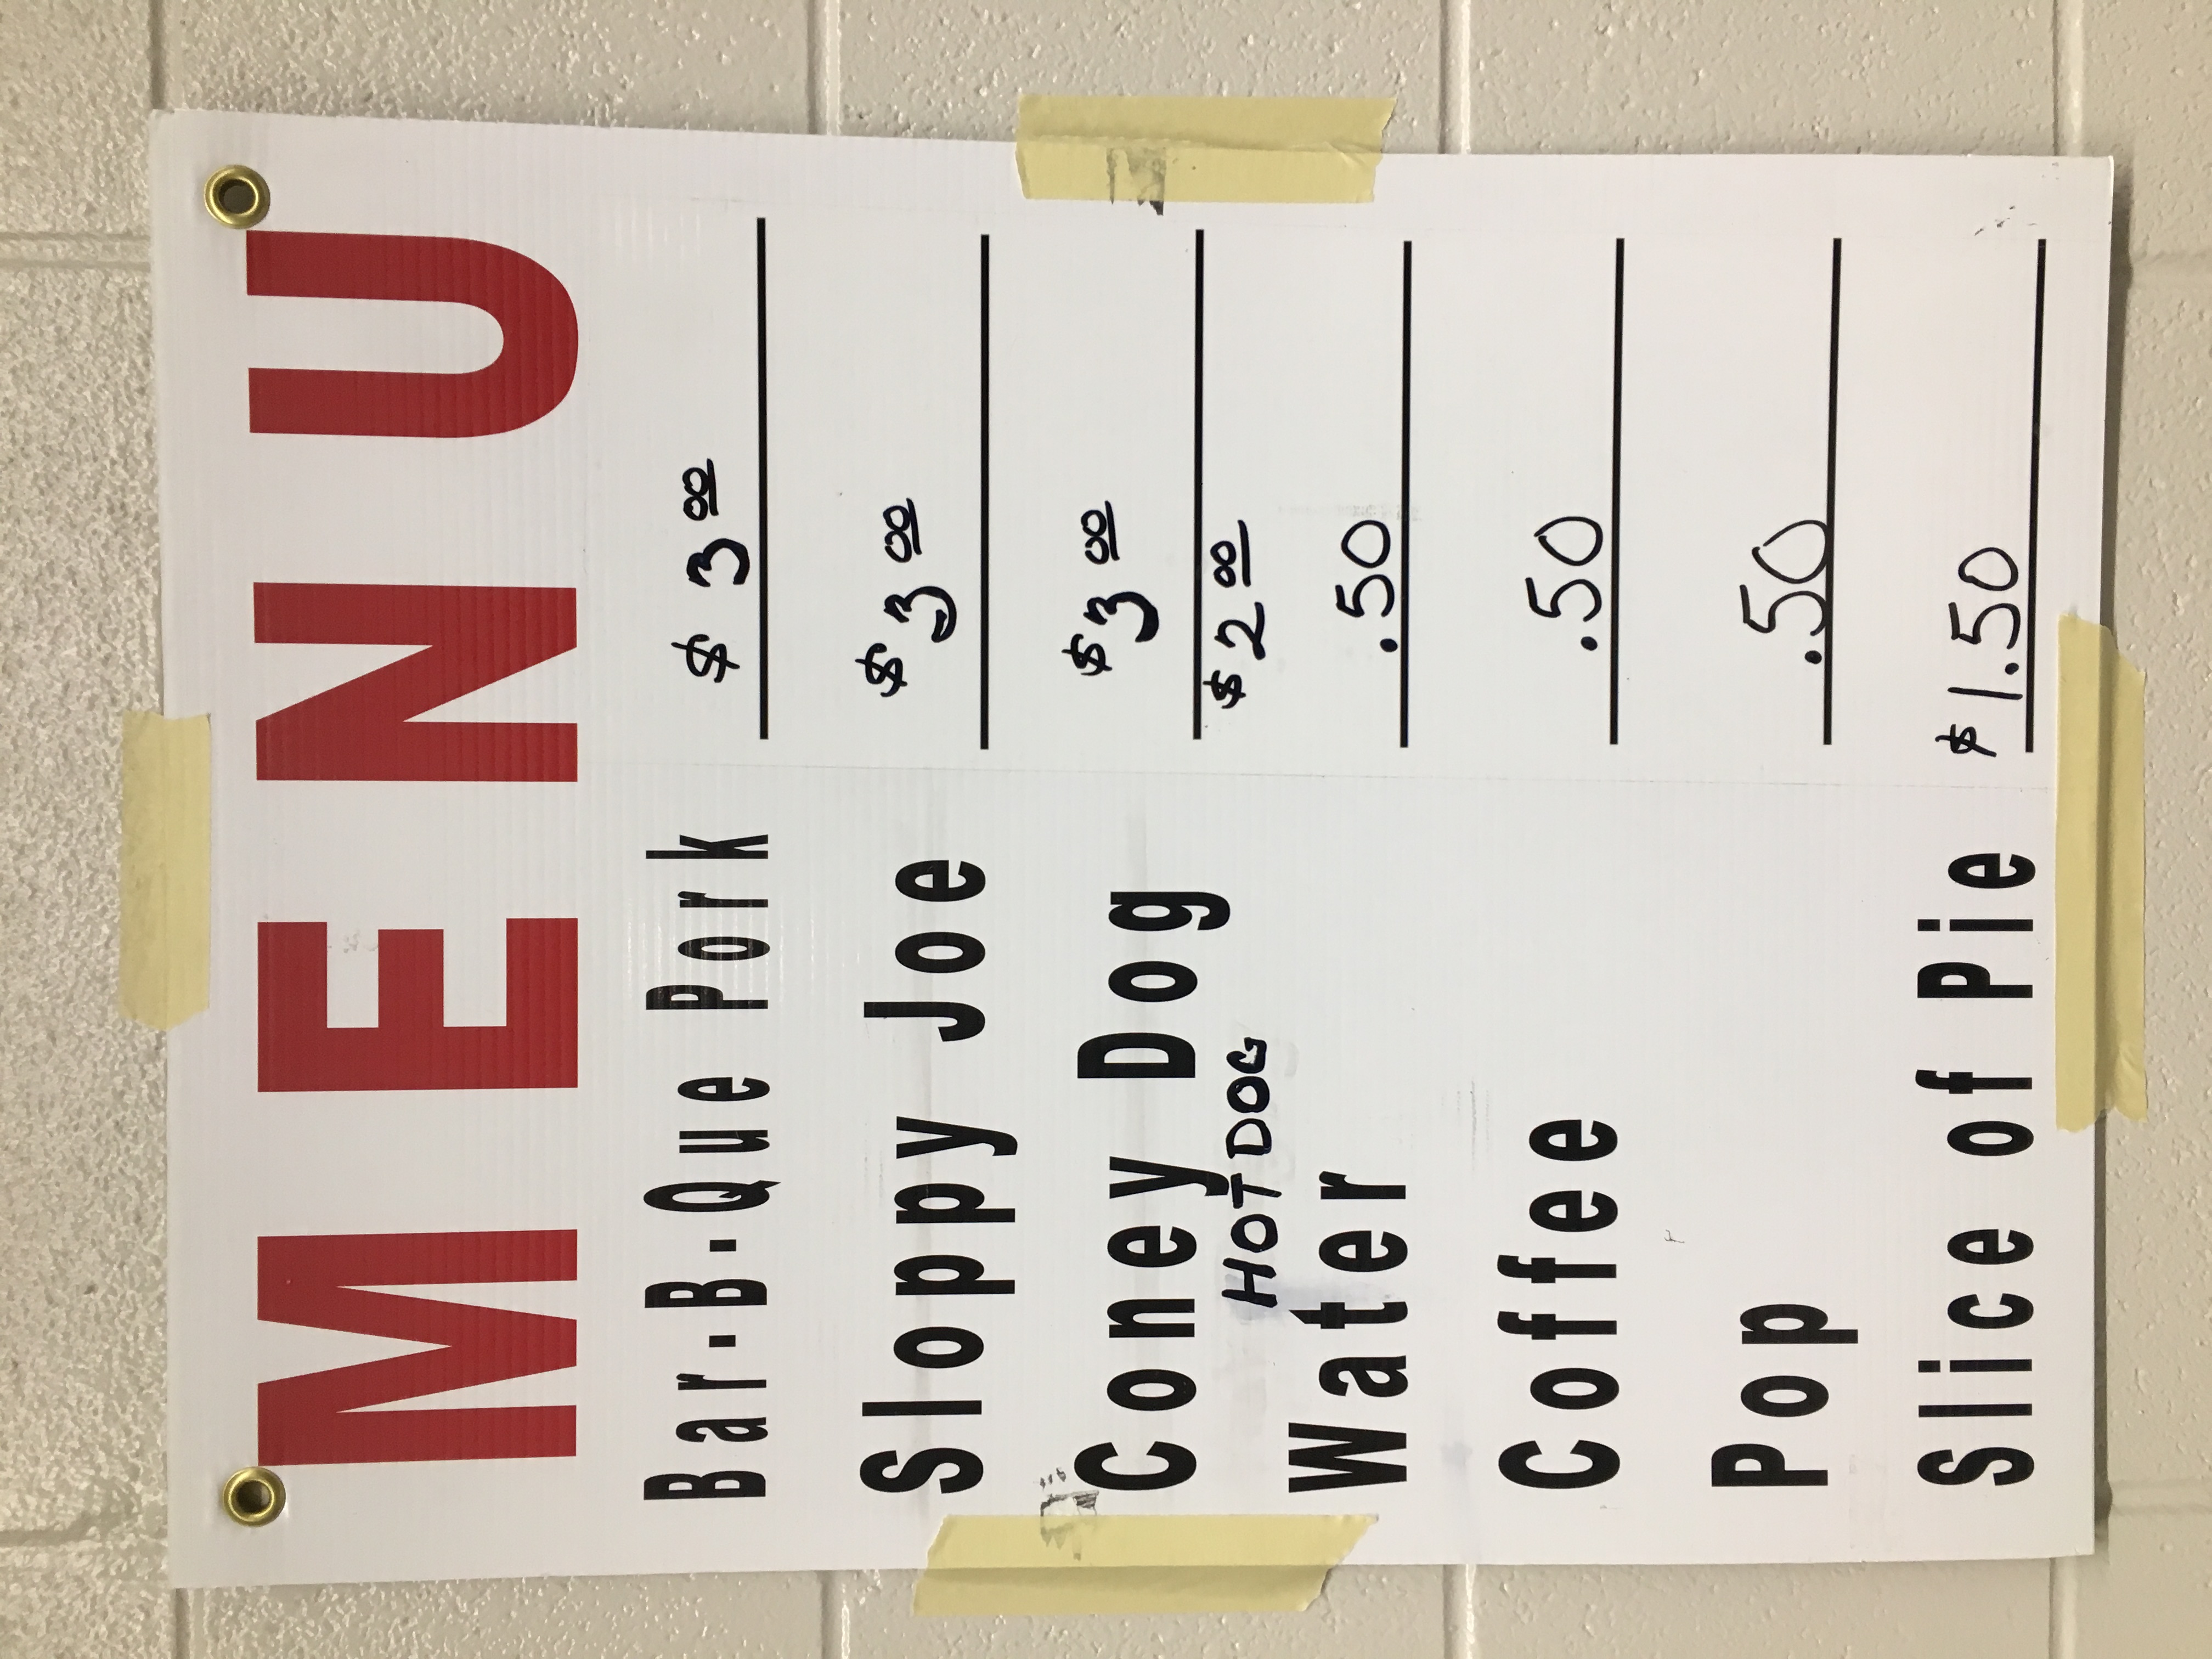 MENU
Bar-B-Que Pork $ 3 00
Sloppy Joe $ 3 00
Coney Dog $ 3 00
HOT DOG $ 2 00
Water .50
Coffee .50
Pop .50
Slice of Pie $1.50